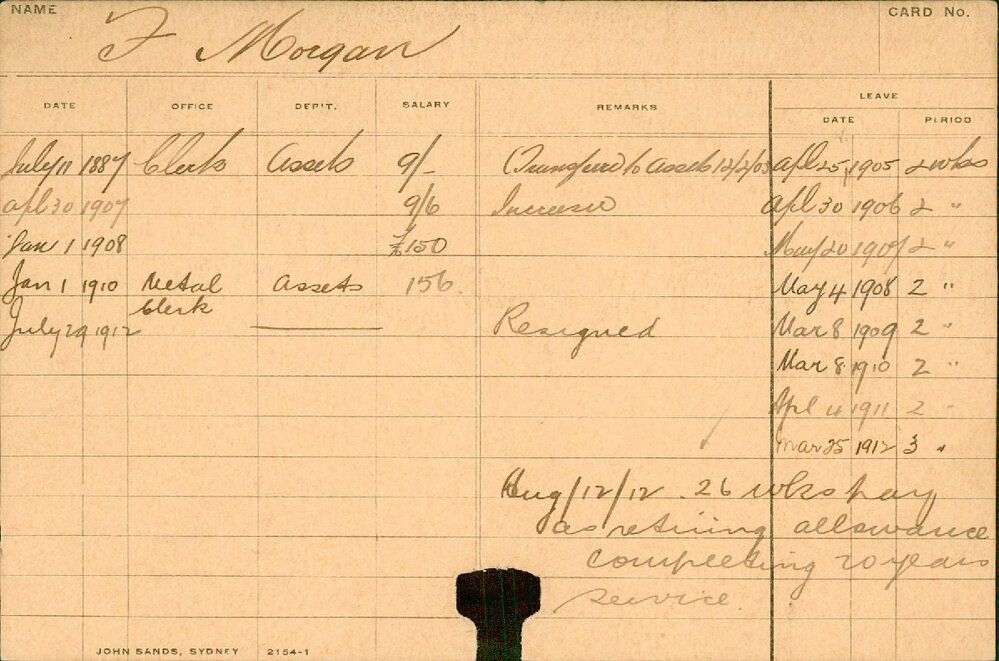 NAME CARD No.
F Morgan
LEAVE
DATE OFFICE DEP'T. SALARY REMARKS DATE PERIOD
July 11 1887 Clerk Assets 9/- Transferred to Assets 12/2/03 Apl 25, 1905 2 wks
Apl 30 1907 9/6 Increase Apl 30 1906 2 "
Jan 1 1908 £150 May 20 1907 2 "
Jan 1 1910 Metal Assets 156 May 4 1908 2 "
Clerk
July 29 1912 Resigned Mar 8 1909 2 "
Mar 8 1910 2 "
Apl 4 1911 2 "
Mar 25 1912 3 "
Aug/12/12 . 26 wks pay
as retiring allowance
completing 20 years
service
JOHN SANDS, SYDNEY 2154-1